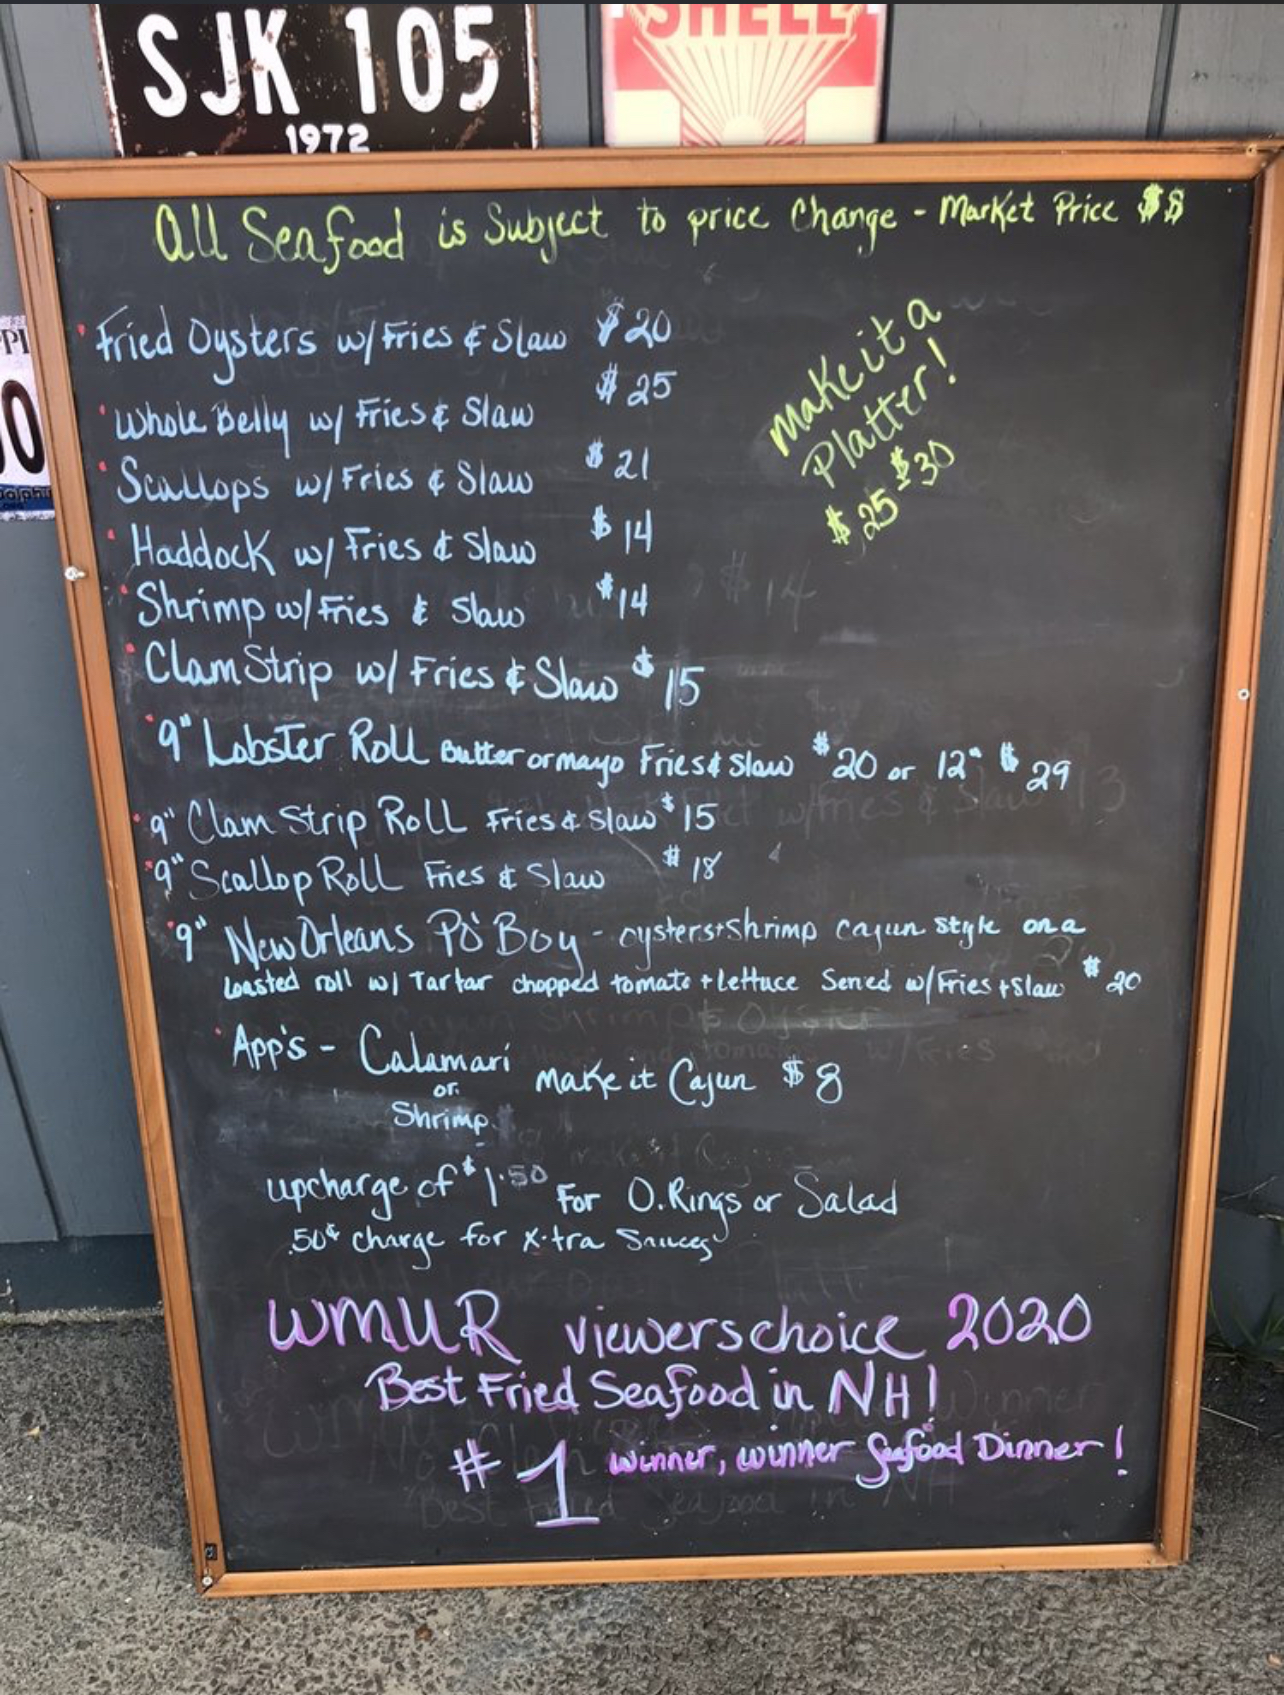 SJK 105
1972
SHELL
All Seafood is Subject to price Change - Market Price $$
Fried Oysters w/Fries & Slaw $20
Whole Belly w/ Fries & Slaw $25
Scallops w/Fries & Slaw $21
Haddock w/ Fries & Slaw $14
Shrimp w/Fries & Slaw $14
Clam Strip w/ Fries & Slaw $15
Make it a
Platter!
$25 - $30
9" Lobster Roll Butter or mayo Fries & Slaw $20 or 12" $29
9" Clam Strip Roll Fries & Slaw $15
9" Scallop Roll Fries & Slaw $18
9" New Orleans Po' Boy - oysters + Shrimp Cajun Style on a
toasted roll w/ Tartar chopped tomato + lettuce Served w/Fries + Slaw $20
App's - Calamari
or
Shrimp
Make it Cajun $8
upcharge of $1.50 For O.Rings or Salad
.50¢ charge for x-tra Sauces
WMUR viewers choice 2020
Best Fried Seafood in NH!
#1 winner, winner Seafood Dinner!